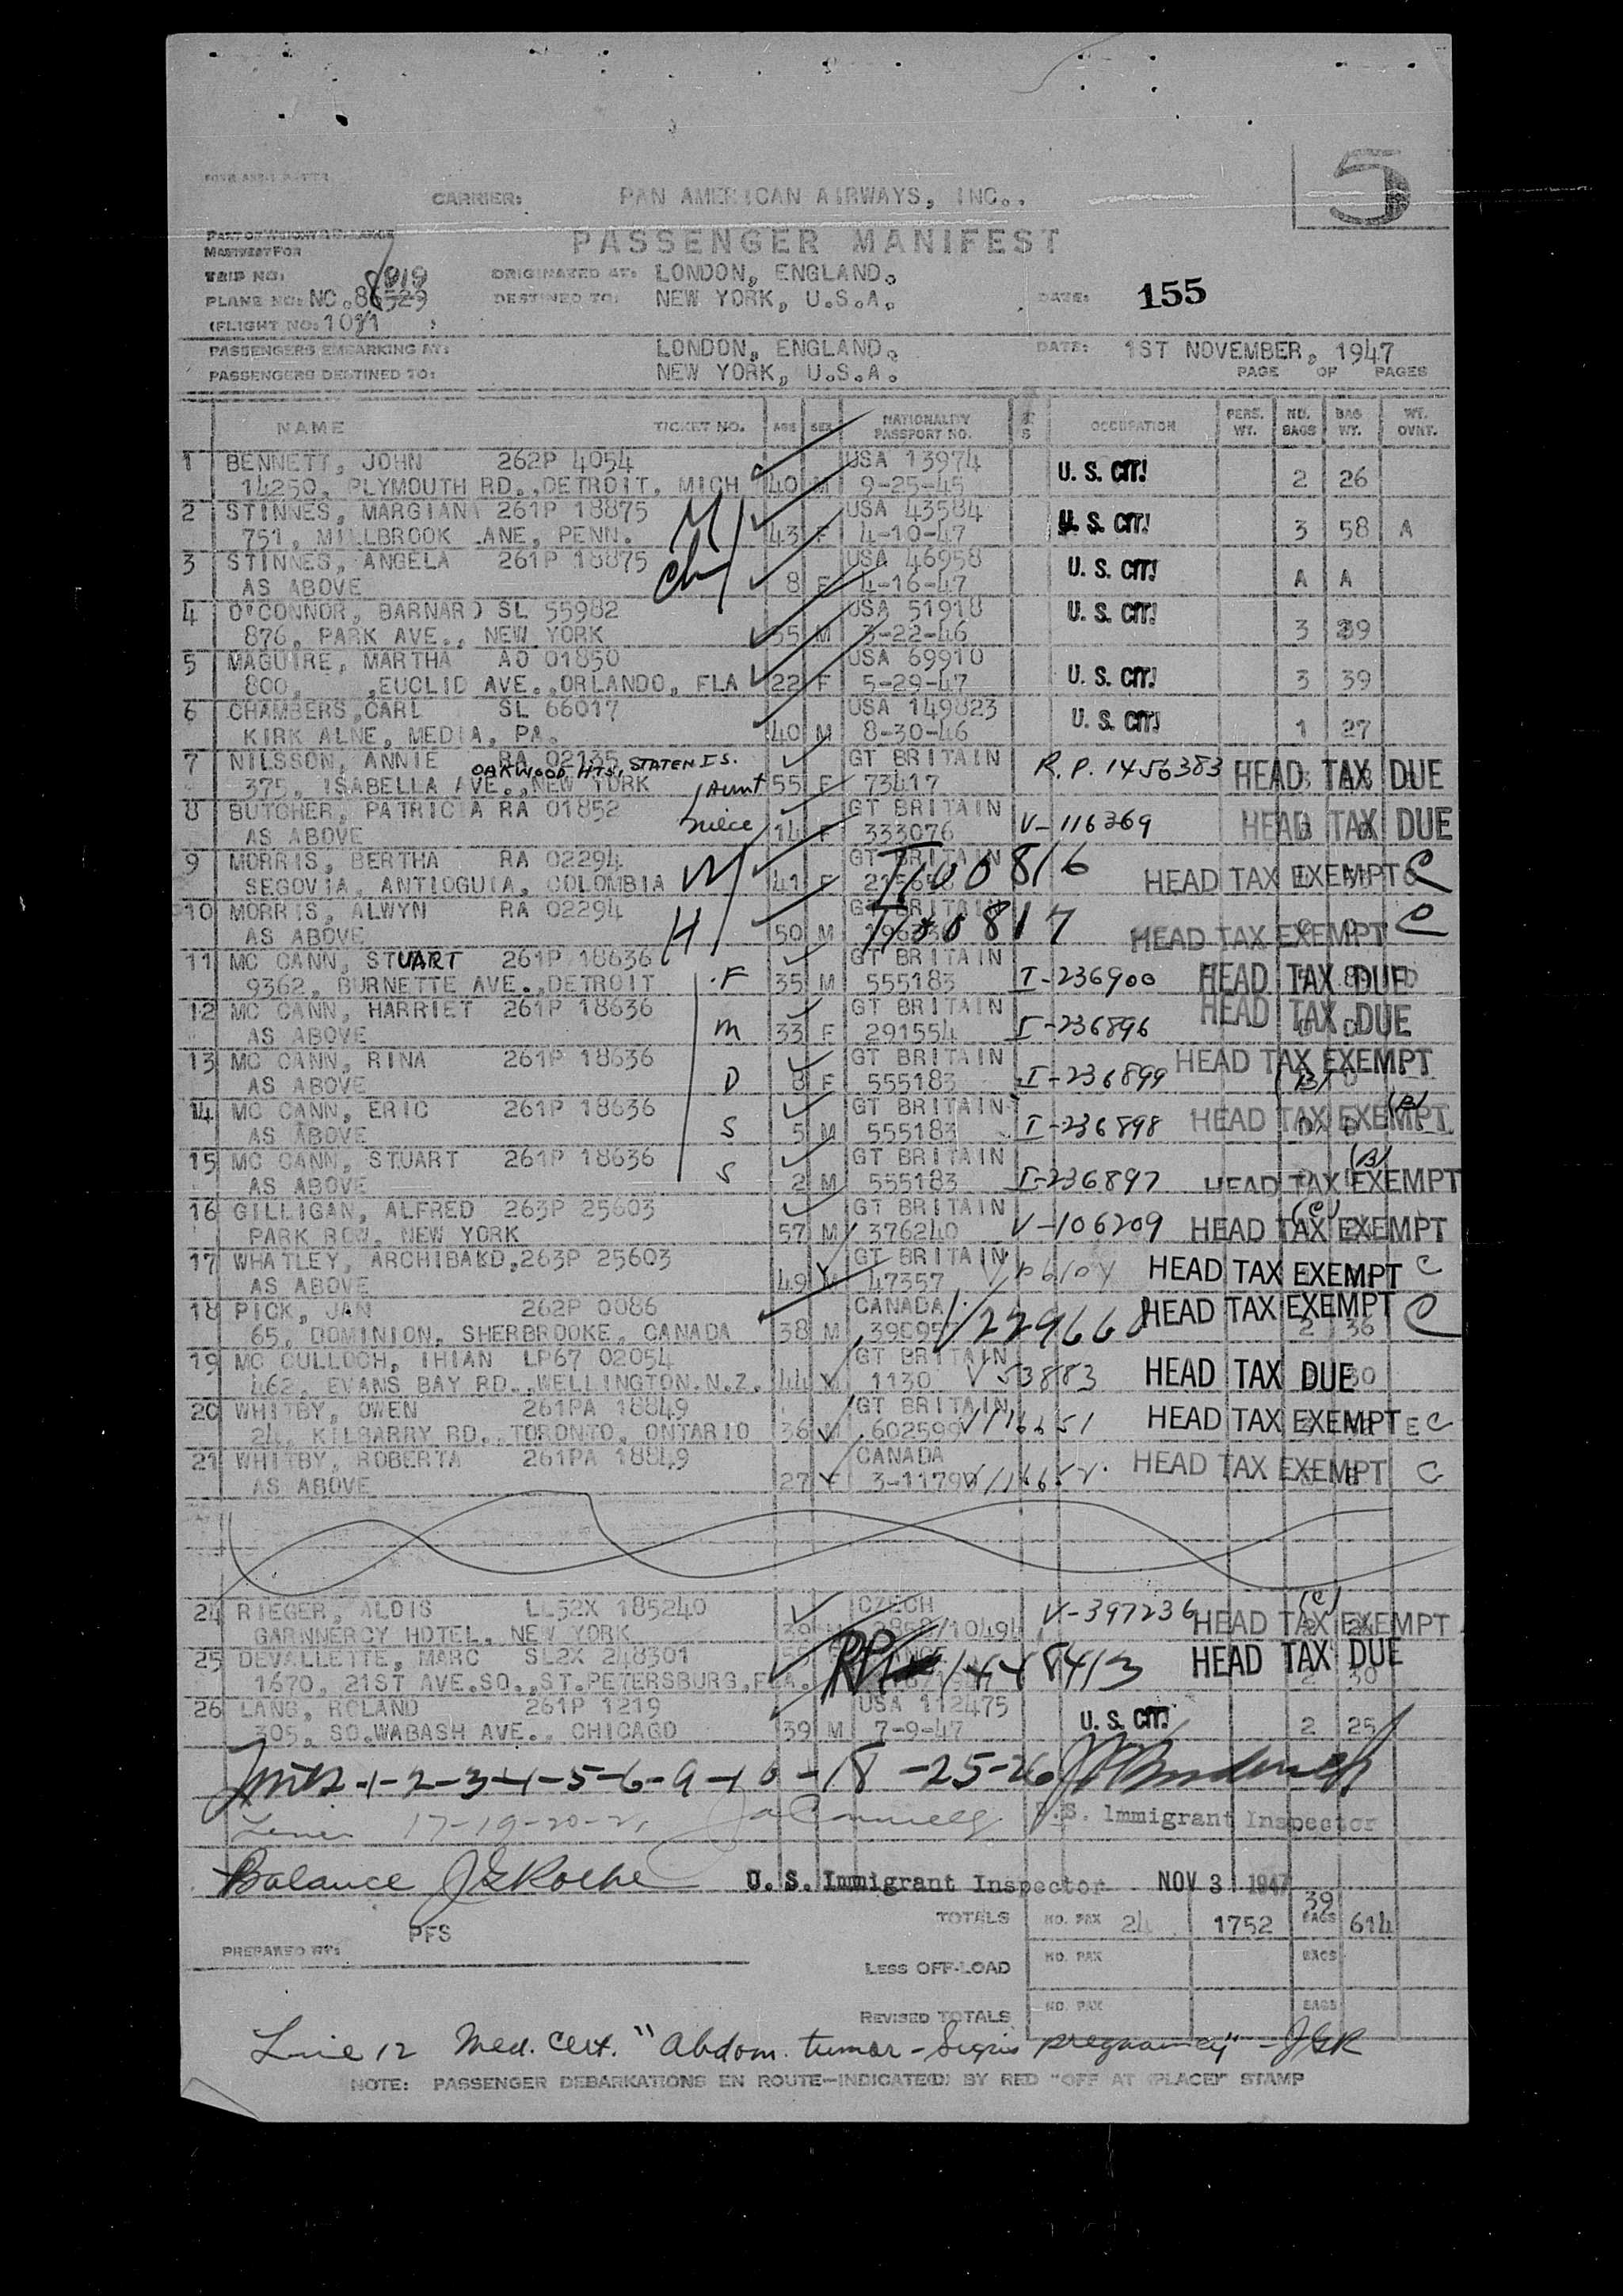 5
CARRIER: PAN AMERICAN AIRWAYS, INC..
PART OF WEIGHT & BALANCE
MANIFEST FOR
PASSENGER MANIFEST
TRIP NO: ORIGINATED AT: LONDON, ENGLAND.
PLANE NO: NC.86529 8919 DESTINED TO: NEW YORK, U.S.A. DATE: 155
(FLIGHT NO: 101/1 )
PASSENGERS EMBARKING AT: LONDON, ENGLAND. DATE: 1ST NOVEMBER, 1947
PASSENGERS DESTINED TO: NEW YORK, U.S.A. PAGE OF PAGES
NAME TICKET NO. AGE SEX NATIONALITY PASSPORT NO. OCCUPATION PERS. WT. NO. BAGS BAG WT. WT. OVNT.
1 BENNETT, JOHN 262P 4054 USA 13974 U. S. CIT!
14250, PLYMOUTH RD.,DETROIT, MICH 40 M 9-25-45 2 26
2 STINNES, MARGIANA 261P 18875 M USA 43584 U. S. CIT!
751, MILLBROOK LANE, PENN. 43 F 4-10-47 3 58 A
3 STINNES, ANGELA 261P 18875 Ch USA 46958 U. S. CIT!
AS ABOVE 8 F 4-16-47 A A
4 O'CONNOR, BARNARD SL 55982 USA 51918 U. S. CIT!
876, PARK AVE., NEW YORK 55 M 3-22-46 3 39
5 MAGUIRE, MARTHA AO 01850 USA 69910 U. S. CIT!
800, ,EUCLID AVE.,ORLANDO, FLA 22 F 5-29-47 3 39
6 CHAMBERS,CARL SL 66017 USA 149823 U. S. CIT!
KIRK ALNE, MEDIA, PA. 40 M 8-30-46 1 27
7 NILSSON, ANNIE RA 02135 OAKWOOD HTS, STATEN IS. GT BRITAIN R.P. 1456383 HEAD TAX DUE
375, ISABELLA AVE.,NEW YORK Aunt 55 F 73417
8 BUTCHER, PATRICIA RA 01852 niece GT BRITAIN V-116369 HEAD TAX DUE
AS ABOVE 14 F 333076
9 MORRIS, BERTHA RA 02294 W GT BRITAIN HEAD TAX EXEMPT C
SEGOVIA, ANTIOGUIA, COLOMBIA 41 F
10 MORRIS, ALWYN RA 02294 H GT BRITAIN HEAD TAX EXEMPT C
AS ABOVE 50 M
11 MC CANN, STUART 261P 18636 F GT BRITAIN I-236900 HEAD TAX DUE
9362, BURNETTE AVE.,DETROIT 35 M 555183
12 MC CANN, HARRIET 261P 18636 M GT BRITAIN I-236896 HEAD TAX DUE
AS ABOVE 33 F 291554
13 MC CANN, RINA 261P 18636 D GT BRITAIN I-236899 HEAD TAX EXEMPT (B)
AS ABOVE 8 F 555183
14 MC CANN, ERIC 261P 18636 S GT BRITAIN I-236898 HEAD TAX EXEMPT (B)
AS ABOVE 5 M 555183
15 MC CANN, STUART 261P 18636 S GT BRITAIN I-236897 HEAD TAX EXEMPT (B)
AS ABOVE 2 M 555183
16 GILLIGAN, ALFRED 263P 25603 GT BRITAIN V-106209 HEAD TAX EXEMPT (C)
PARK ROW, NEW YORK 57 M 376240
17 WHATLEY, ARCHIBAKD,263P 25603 GT BRITAIN HEAD TAX EXEMPT C
AS ABOVE 49 M 47357
18 PICK, JAN 262P 0086 CANADA V229660 HEAD TAX EXEMPT C
65, DOMINION, SHERBROOKE, CANADA 38 M 2 36
19 MC CULLOCH, IHIAN LP67 02054 GT BRITAIN V53883 HEAD TAX DUE
462, EVANS BAY RD.,WELLINGTON.N.Z. 44 M 1130
20 WHITBY, OWEN 261PA 18849 GT BRITAIN V116651 HEAD TAX EXEMPT C
24, KILBARRY RD.,TORONTO, ONTARIO 36 M 602599
21 WHITBY, ROBERTA 261PA 18849 CANADA V116652 HEAD TAX EXEMPT C
AS ABOVE 27 F
24 RIEGER, ALOIS LL52X 185240 CZECH V-397236 HEAD TAX EXEMPT (C)
GARNNERCY HOTEL, NEW YORK 39 M
25 DEVALLETTE, MARC SL2X 248301 RP 1448413 HEAD TAX DUE
1670, 21ST AVE.SO.,ST.PETERSBURG,FLA. 2 30
26 LANG, ROLAND 261P 1219 USA 112475 U. S. CIT!
305, SO.WABASH AVE., CHICAGO 39 M 7-9-47 2 25
Lines -1-2-3-4-5-6-9-10-18-25-26
Lines 17-19-20-21 U.S. Immigrant Inspector
Balance U.S. Immigrant Inspector NOV 3 1947
TOTALS NO. PAX 24 1752 39 BAGS 614
PFS
PREPARED BY:
LESS OFF-LOAD NO. PAX BAGS
REVISED TOTALS NO. PAX BAGS
Line 12 Med. Cert. "Abdom. tumor - pregnancy" - JGR
NOTE: PASSENGER DEBARKATIONS EN ROUTE—INDICATE(D) BY RED "OFF AT (PLACE)" STAMP